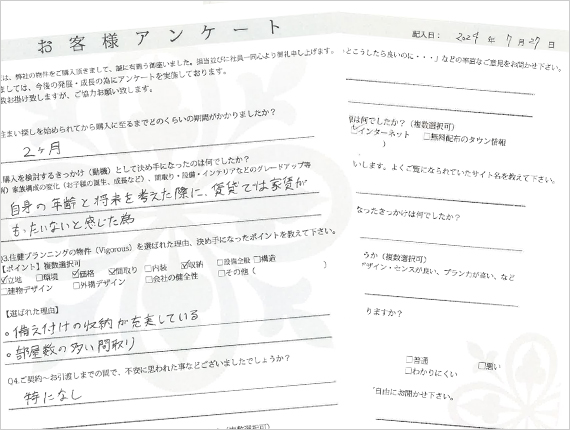 お客様アンケート
は、弊社の物件をご購入頂きまして、誠に有難う御座いました。担当並びに社員一同心より御礼申し上げます。
ましては、今後の発展・成長の為にアンケートを実施しております。
お掛け致しますが、ご協力お願い致します。
住まい探しを始められてから購入に至るまでどのくらいの期間がかかりましたか?
2ヶ月
購入を検討するきっかけ(動機)として決め手になったのは何でしたか?
家族構成の変化(お子様の誕生、成長など)、間取り・設備・インテリアなどのグレードアップ等
自身の年齢と将来を考えた際に、賃貸では家賃が
もったいないと感じた為
Q3.住健プランニングの物件(Vigorous)を選ばれた理由、決め手になったポイントを教えて下さい。
【ポイント】複数選択可
☑立地 □環境 ☑価格 ☑間取り □内装 ☑収納 □設備全般 □構造
□建物デザイン □外構デザイン □会社の健全性 □その他( )
【選ばれた理由】
○備え付けの収納が充実している
○部屋数の多い間取り
Q4.ご契約〜お引渡しまでの間で、不安に思われた事などございましたでしょうか?
特になし
(複数選択可)
記入日: 2024 年 7 月 27 日
いとこうしたら良いのに・・・」などの率直なご意見をお聞かせ下さい。
は何でしたか?(複数選択可)
☑インターネット □無料配布のタウン情報
)
いします。よくご覧になられていたサイト名を教えて下さい。
なったきっかけは何でしたか?
うか(複数選択可)
デザイン・センスが良い、プラン力が高い、など
りますか?
□普通 □悪い
□わかりにくい
自由にお聞かせ下さい。